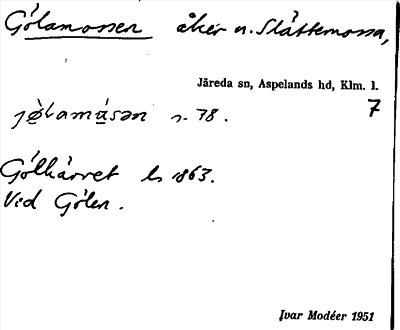 Gölamossen åker n. Slåttemossa,
Järeda sn, Aspelands hd, Klm. l.
7
s. 78.
Gölkärret ls 1863.
Vid Gölen.
Ivar Modéer 1951